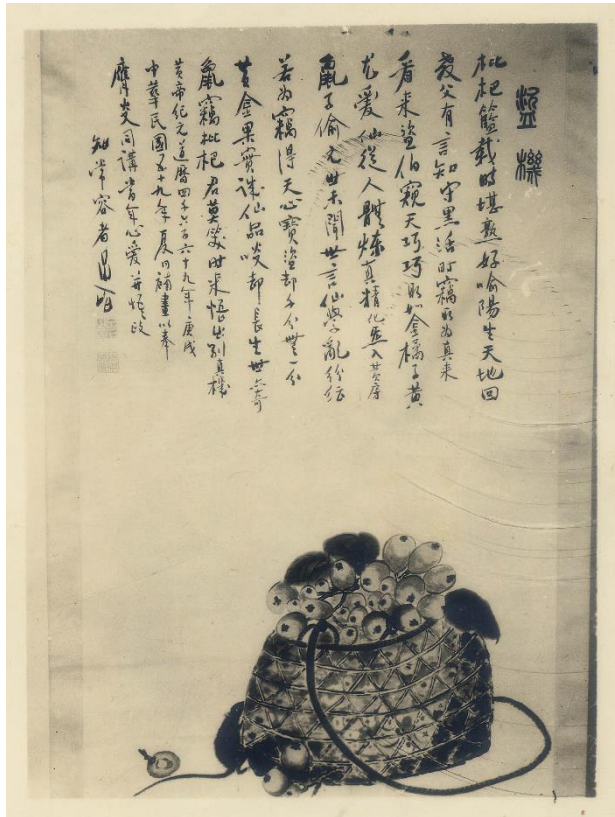 盜機
枇杷籃載時堪熟好喻陽生天地回
教父有言知守黑活時竊取為真來
看來盜伯窺天巧巧取如金橘子黃
尤愛仙從人體煉真精化炁入黃房
鼠子偷光世未聞世言仙學亂紛紜
若為竊得天心寶盜却千分與一分
黃金果實誅仙品啖却長生世亦奇
鼠竊枇杷君莫笑時來悟出別真機
黃帝紀元道曆四千六百六十九年庚戌
中華民國五十九年夏四補畫以奉
膺炎同講當年心愛并
知常容者